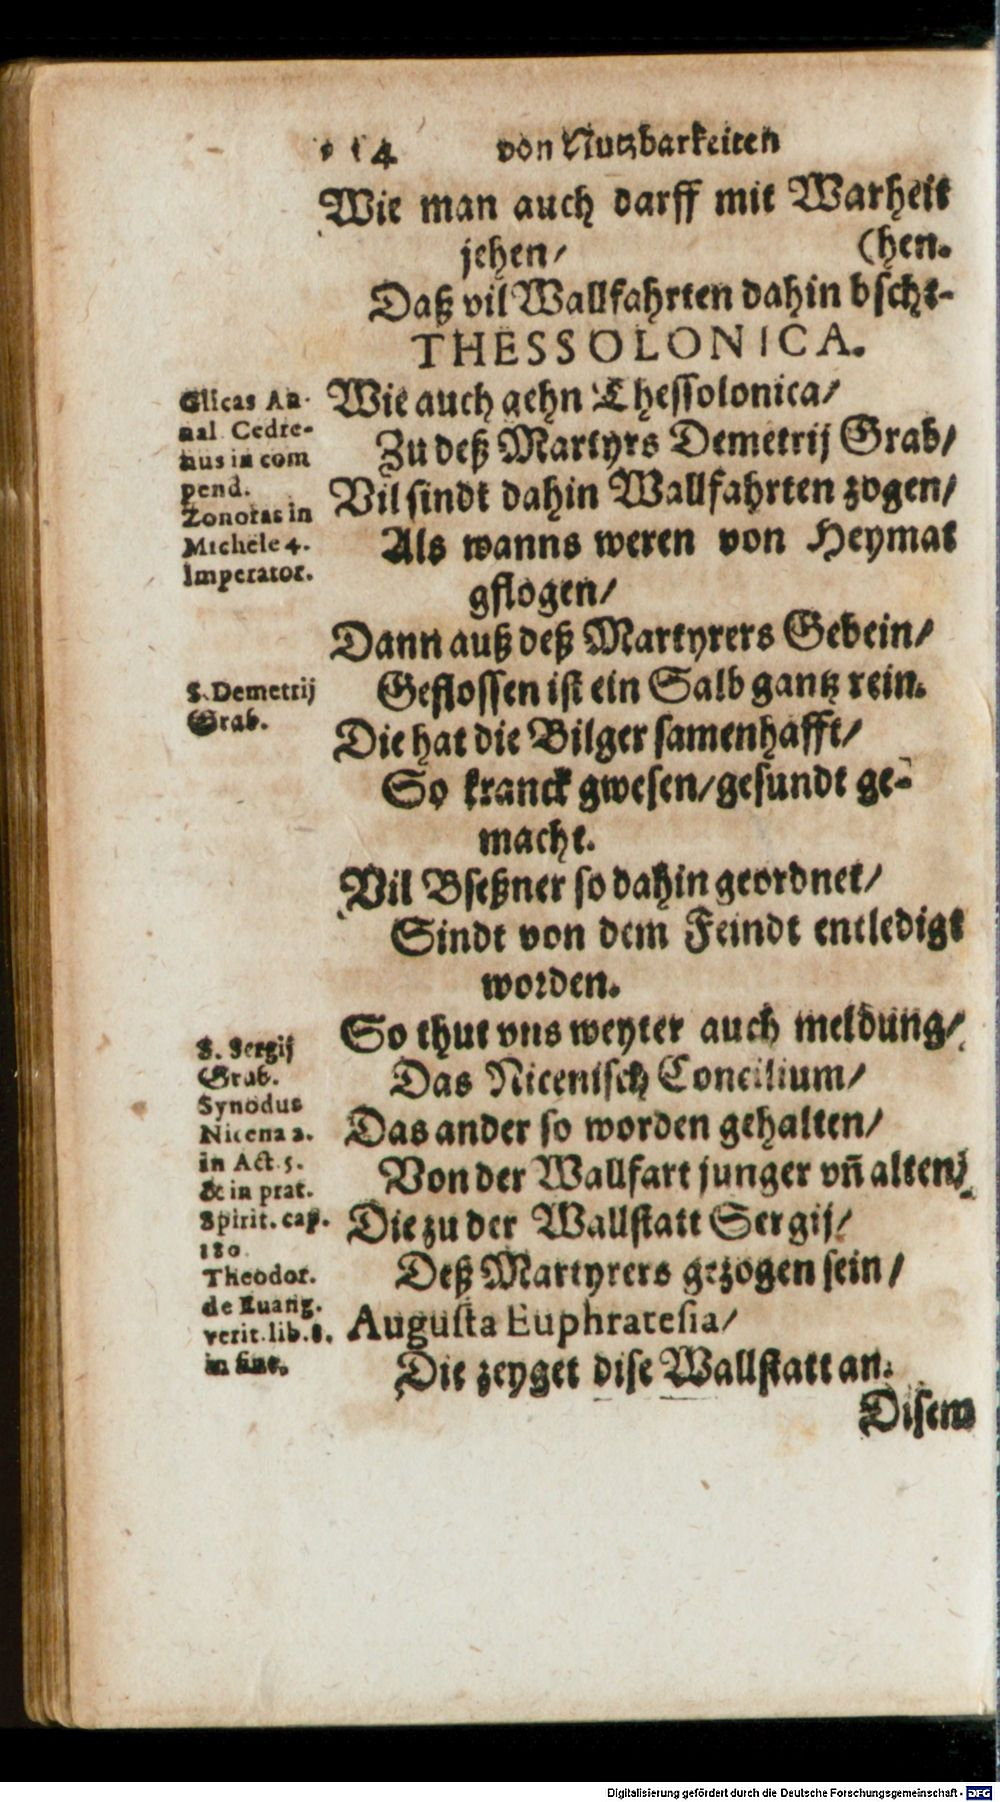 114 von Nutzbarkeiten
Wie man auch darff mit Warheit
jehen/ (hen.
Daß vil Wallfahrten dahin bsche-
THESSOLONICA.
Wie auch gehn Thessolonica/
Zu deß Martyrs Demetrij Grab/
Vil sindt dahin Wallfahrten zogen/
Als wanns weren von Heymat
gflogen/
Dann auß deß Martyrers Gebein/
Geflossen ist ein Salb gantz rein.
Die hat die Bilger samenhafft/
So kranck gwesen/gesundt ge-
macht.
Vil Bseßner so dahin geordnet/
Sindt von dem Feindt entledigt
worden.
So thut vns weyter auch meldung/
Das Nicenisch Concilium/
Das ander so worden gehalten/
Von der Wallfart junger vñ alten/
Die zu der Wallstatt Sergij/
Deß Martyrers gezogen sein/
Augusta Euphratesia/
Die zeyget dise Wallstatt an.
Disem
Glicas An-
nal Cedre-
nus in com
pend.
Zonoras in
Michele 4.
Imperator.
S. Demetrij
Grab.
S. Sergij
Grab.
Synodus
Nicena 2.
in Act. 5.
& in prat.
Spirit. cap.
180.
Theodor.
de Euang.
verit. lib. 8.
in fine.
Digitalisierung gefördert durch die Deutsche Forschungsgemeinschaft - DFG